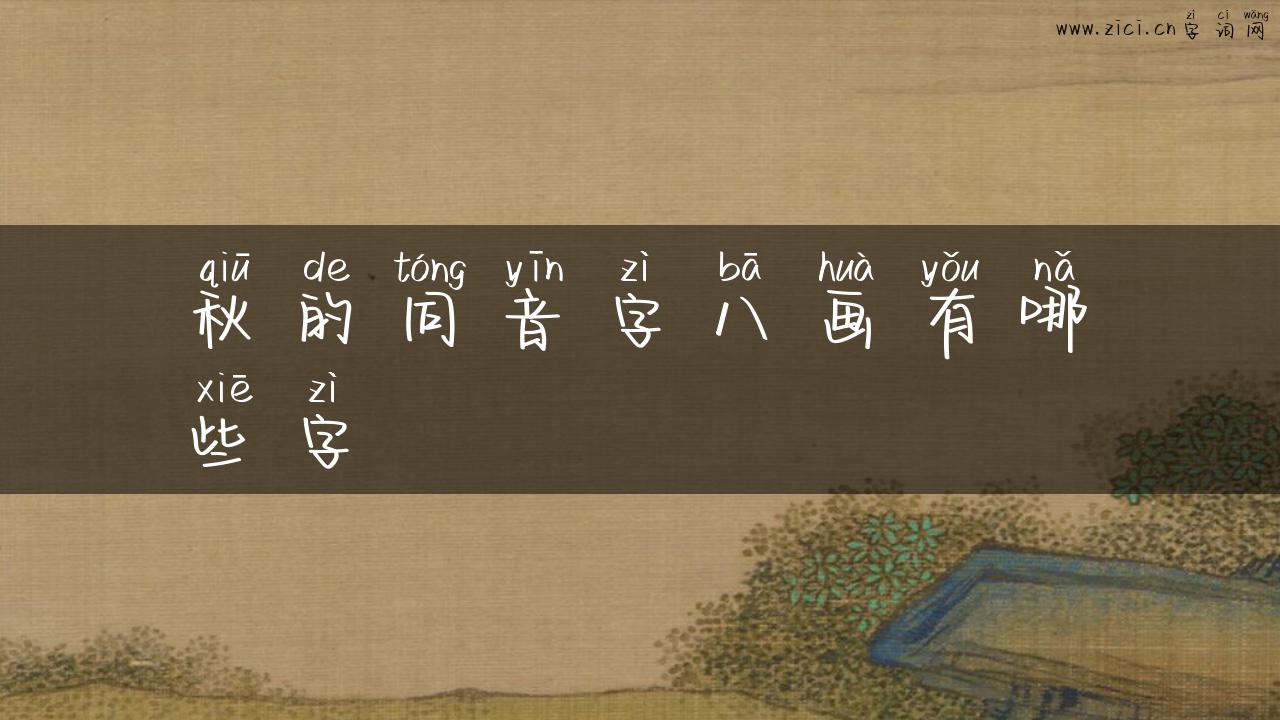 zì cí wǎng
www.zici.cn 字词网
qiū de tóng yīn zì bā huà yǒu nǎ
秋的同音字八画有哪
xiē zì
些字